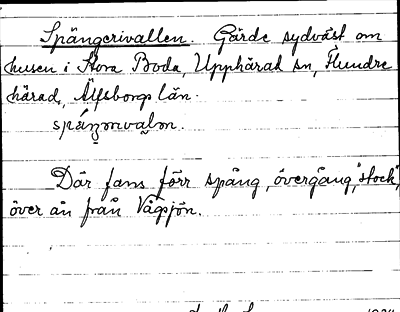 Spångerivallen. Gärde sydväst om
husen i Stora Boda, Upphärad sn, Flundre
härad, Älfsborgs län.
Där fans förr spång, övergång, "stock",
över ån från Vågsjön.